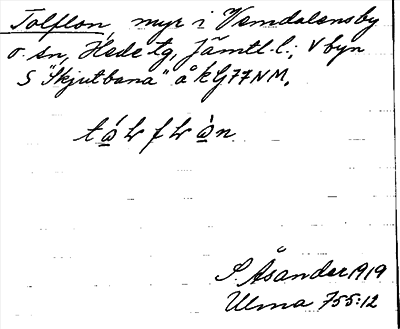 Tolflon, myr i Vemdalensby
o. sn, Hede tg, Jämtl. l.; V byn
S "Skjutbana" å k G77NM.
P. Åsander 1919
Ulma 755:12